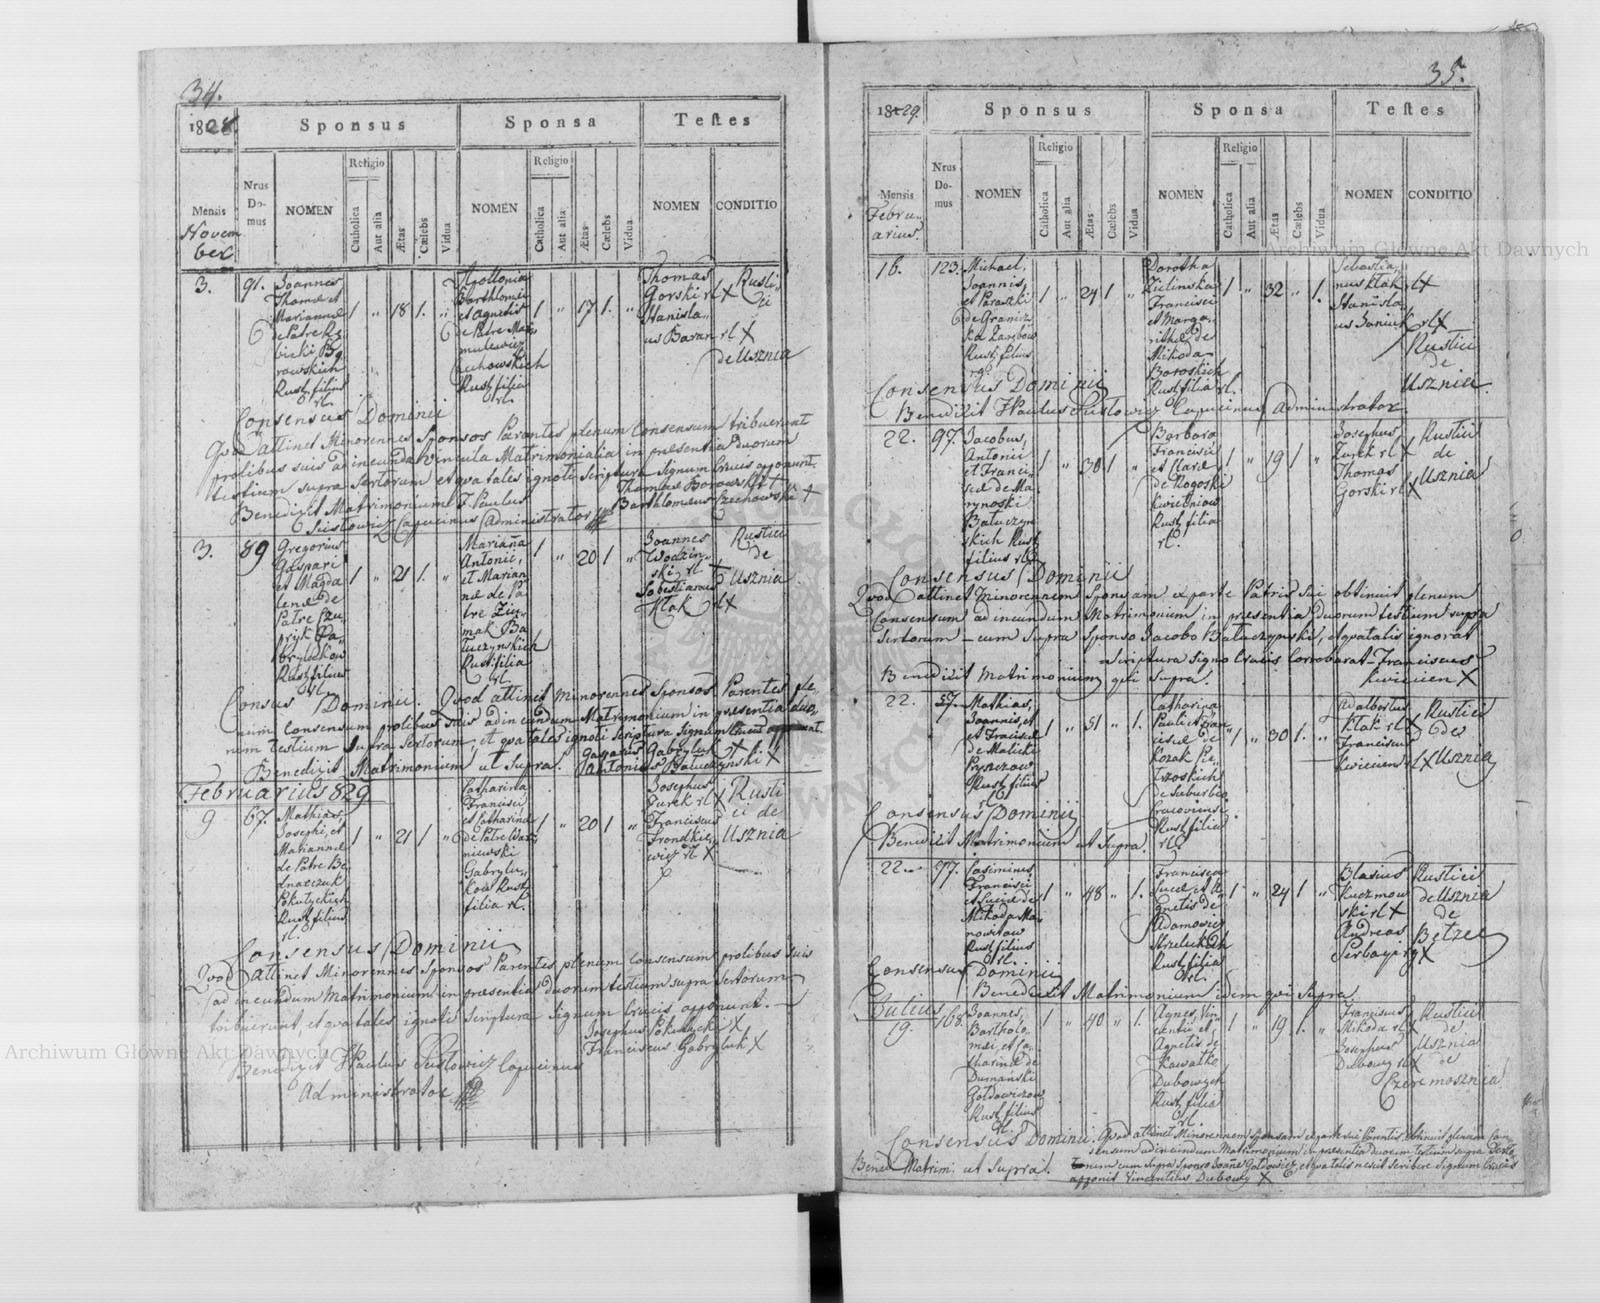 34.
1828. Sponsus Sponsa Testes
Mensis Novem ber
Nrus Do- mus
NOMEN
Religio
Catholica
Aut alia
Ætas
Cælebs
Vidua
NOMEN
Religio
Catholica
Aut alia
Ætas
Cælebs
Vidua
NOMEN
CONDITIO
3. 91.
Joannes
Thomæ et
Mariannæ
de Patre
rowskich
Rust filius
rl.
1 " 18 1. "
Apollonia
Barthlomei
et Agnetis
de Patre
Rust filia
rl.
1 " 17 1. "
Thomas
Gorski rl X
Stanisla-
us Baran rl X
Rusti-
ci
de Usznia
Consensus Dominii
Qvod attinet Minorennes Sponsos Parentes plenum Consensum tribuerunt
prolibus suis ad ineunda vincula Matrimonialia in præsentia duorum
testium supra sertorum et qva tales ignoti Scripturæ Signum Crucis apponunt.
Benedixit Matrimonium F. Paulus
Thomas Borowski +
Sustowicz Capucinus Administrator
Barthlomeus Czechowski +
3. 89
Gregorius
Gaspari
et Magda
lenæ de
Patre
Rust filius
rl.
1 " 21 1. "
Marianna
Antonii,
et Marian
næ de Pa
tre
mak Ba
luczynskich
Rust filia
rl.
1 " 20 1 "
Joannes
Wodzin-
ski rl +
Sebestianus
Klak rl X
Rustici
de
Usznia
Consus Dominii. Qvod attinet minorennes Sponsos Parentes ple-
num consensum prolibus suis ad in eundum Matrimonium in præsentia duo-
rum testium supra Sertorum, et qva tales ignoti Scripturæ Signum Crucis
Benedixit Matrimonium ut Supra.
Gasparus Gabryluk +
Antonius Baluczynski X
Februarius 829
9 67.
Mathias,
Josephi, et
Mariannæ
de Patre Be
dnarczuk
Pokutyckich
Rust filius
rl.
1 " 21 1 "
Catharina
Francisci
et Catharinæ
de Patre
niewski
Gabrylu-
kow Rust
filia rl.
1 " 20 1 "
Josephus
Turek rl X
Franciscus
wicz rl X
Rusti
ci de
Usznia
Consensus Dominii
Qvod attinet Minorennes Sponsos Parentes plenum Consensum prolibus suis
ad in eundum Matrimonium in præsentia duorum testium supra Sertorum
tribuerunt, et qva tales ignoti Scripturæ Signum Crucis apponunt.
Josephus Pokutycki X
Franciscus Gabryluk X
Benedixit F. Paulus Sustowicz Capucinus
Administrator
35.
1829. Sponsus Sponsa Testes
Mensis Febru- arius.
Nrus Do- mus
NOMEN
Religio
Catholica
Aut alia
Ætas
Cælebs
Vidua
NOMEN
Religio
Catholica
Aut alia
Ætas
Cælebs
Vidua
NOMEN
CONDITIO
16. 123.
Michael,
Joannis,
et
de
Rust filius
rl.
1 " 24 1 "
Dorotha
Zielinska
Francisci
et Marga-
rithæ de
Mikoda
Boroskich
Rust filia rl.
1 " 32 " 1.
Sebastia-
nus Klak rl X
Stanisla
us Janiuk rl X
Rustici
de
Usznia
Consensus Dominii
Benedixit F. Paulus Sustowicz Capucinus Administrator.
22. 97.
Jacobus,
Antonii
et Franci-
scæ de Ma
rynoski
Baluczyn
skich Rust
filius rl.
1 " 30 1 "
Barbara
Francisci
et Claræ
de Rogoski
Kwietniow
Rust filia
rl.
1 " 19 1 "
Josephus
Turek rl X
Thomas
Gorski rl X
Rustici
de
Usznia
Consensus Dominii
Qvod attinet Minorennem Sponsam ex parte Patris sui obtinuit plenum
Consensum ad ineundum Matrimonium in præsentia duorum testium supra
Sertorum – cum Supra Sponso Jacobo Baluczynski, et qva talis ignorat
Scripturæ Signo Crucis Corroborat – Franciscus
Benedixit Matrimonium qvi Supra. Kwicien X
22. 57.
Mathias,
Joannis, et
et Franciscæ
de Malicki
Pryszczow
Rust filius
rl.
1 " 51 " 1.
Catharina
Pauli et Fran
ciscæ de
Kozak
de Suburbio
Cracoviensi
Rust filia
rl.
1 " 30 1. "
Adalbertus
Klak rl X
Franciscus
Kwicien rl X
Rustici
de
Usznia
Consensus Dominii
Benedixit Matrimonium ut Supra.
22. 97.
Casimirus
Francisci
et Luciæ de
Mikoda Ma
nowitow
Rust filius
rl.
1 " 48 " 1.
Francisca
Lucæ et A
gnetis de
Adamowicz
Strzeleckich
Rust filia
rl.
1 " 24 1 "
Blasius
Kuczmow
ski rl X
Andreas
Rustici
de Usznia
de
Betzec
Consensus Dominii
Benedixit Matrimonium idem qvi Supra
Julius
19. 168.
Joannes,
Bartholo
mæi, et Ca
tharinæ de
Dumański
Goldowiczow
Rust filius
rl.
1 " 40 " 1.
Agnes, Vin
centii et
Agnetis de
Kawałko
Dubowych
Rust filia
rl.
1 " 19 1. "
Franciscus
Mikoda rl X
Josephus
Dubowy rl X
Rustici
de
Usznia
de
Czeremosznia
Consensus Dominii. Qvod attinet Minorennem Sponsam ex parte sui Parentis obtinuit plenum Con-
sensum ad ineundum Matrimonium in præsentia duorum testium supra Serto
Bened: Matrim: ut Supra. rum cum supra Sponso Joanne Goldowicz, et qva talis nescit Scribere Signum Crucis
apponit Vincentius Dubowy X
Archiwum Główne Akt Dawnych
Archiwum Główne Akt Dawnych